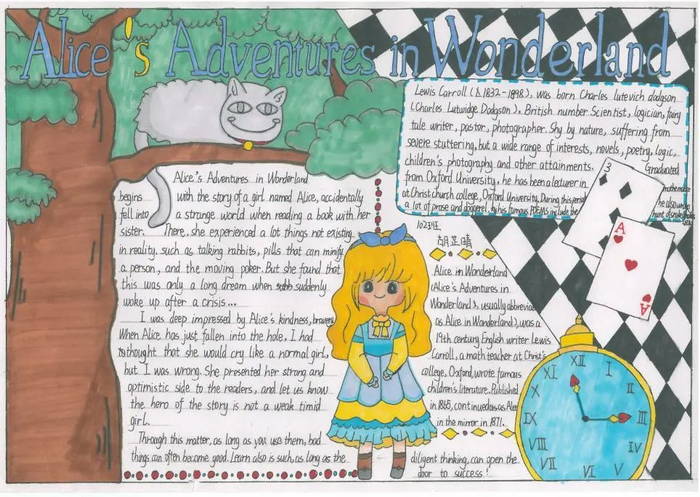 Alice's Adventures in Wonderland
Lewis Carroll (A.1832-1898), was born Charles lutevich dodgson
(Charles Lutwidge Dodgson), British number Scientist, logician, fairy
tale writer, pastor, photographer. Shy by nature, suffering from
severe stuttering, but a wide range of interests, novels, poetry, logic,
children's photography and other attainments. Graduated
from Oxford University, he has been a lecturer in
at Christ church college, Oxford University, During this period
a lot of prose and doggerel, of his famous POEMS include the
he also wrote
3
A
A
Alice's Adventures in Wonderland
begins with the story of a girl named Alice, accidentally
fell into a strange world when reading a book with her
sister. There, she experienced a lot things not existing
in reality. such as talking rabbits, pills that can minify
a person, and the moving poker. But she found that
this was only a long dream when suddenly
woke up after a crisis...
I was deep impressed by Alice's kindness, bravery
When Alice has just fallen into the hole, I had
thought that she would cry like a normal girl,
but I was wrong. She presented her strong and
optimistic side to the readers, and let us know
the hero of the story is not a weak timid
girl.
Through this matter, as long as you use them, bad
things can often become good. Learn also is such, as long as the
diligent thinking, can open the
door to success!
1023班
胡正晴
Alice in Wonderland
(Alice's Adventures in
Wonderland), usually abbreviated
as Alice in Wonderland), was a
19th century English writer Lewis
Carroll, a math teacher at Christ's
college, Oxford, wrote famous
children's literature. Published
in 1865, continued as Alice
in the mirror in 1871.
XII
I
II
III
IV
V
VI
VII
VIII
IX
X
XI